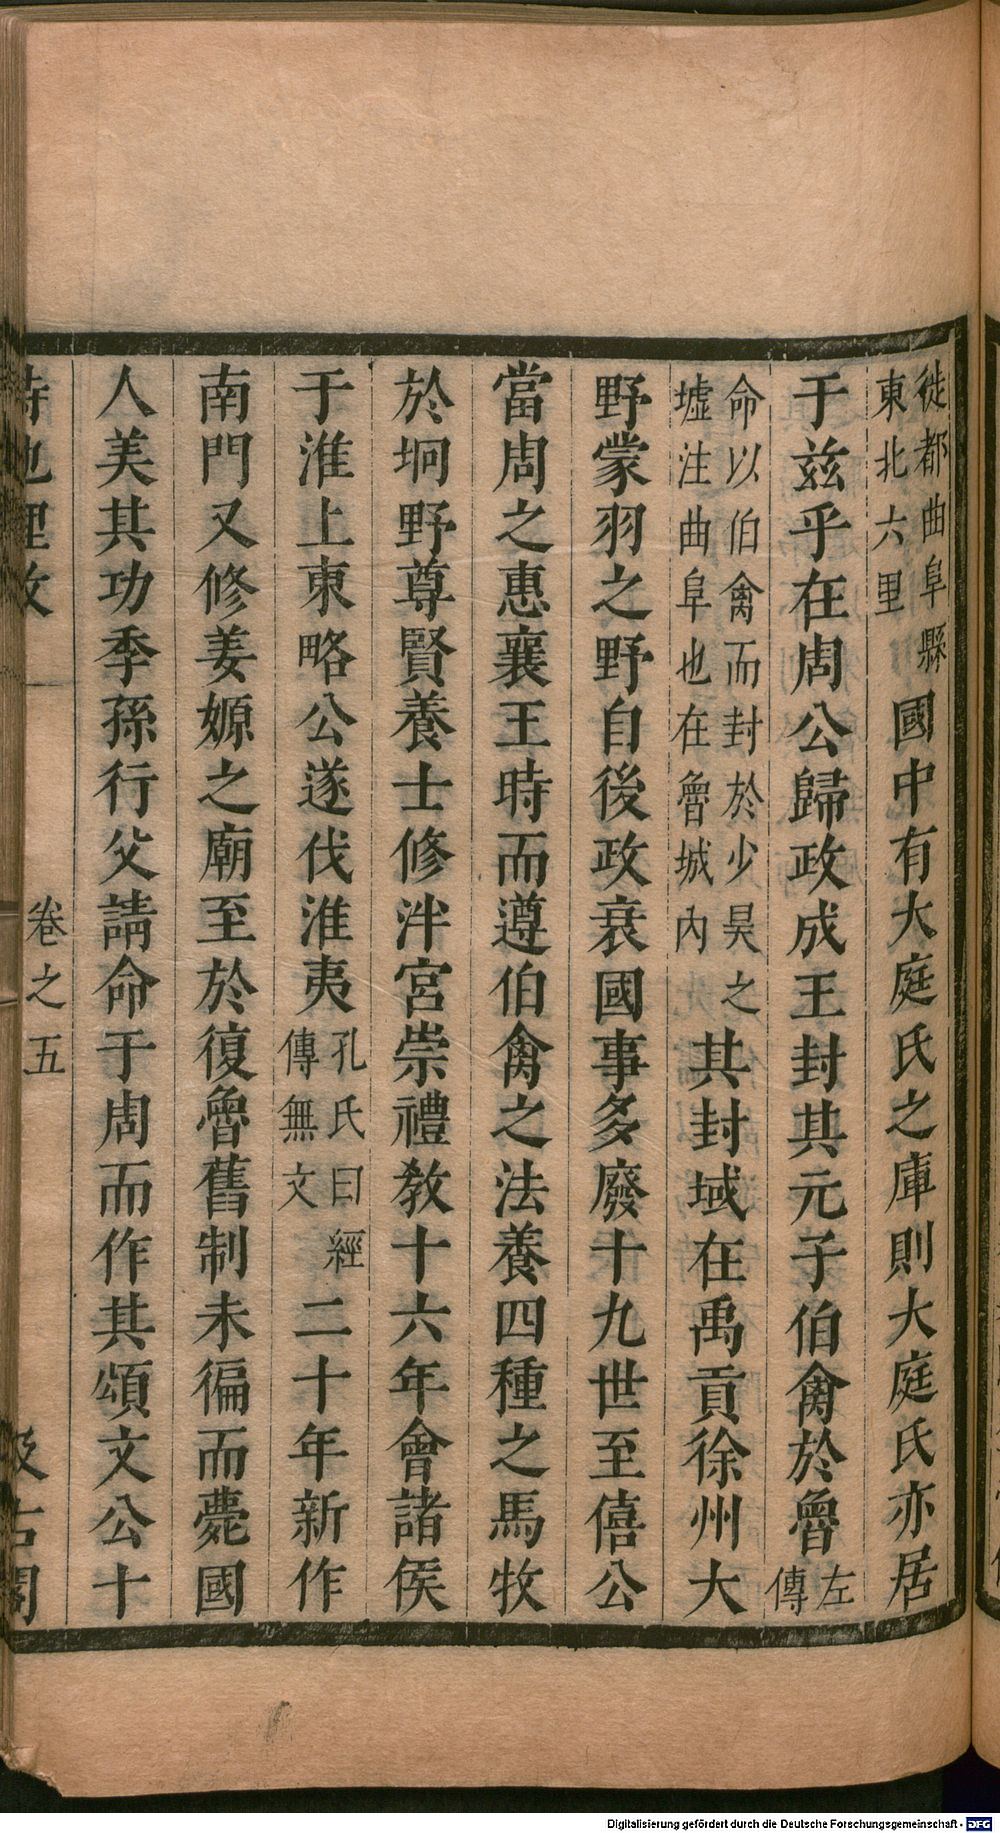 徙都曲阜縣
東北六里
國中有大庭氏之庫則大庭氏亦居
于兹乎在周公歸政成王封其元子伯禽於魯
左
傳
命以伯禽而封於少昊之
墟注曲阜也在魯城內
其封域在禹貢徐州大
野蒙羽之野自後政衰國事多廢十九世至僖公
當周之惠襄王時而遵伯禽之法養四種之馬牧
於坰野尊賢養士修泮宮崇禮教十六年會諸侯
于淮上東略公遂伐淮夷
孔氏曰經
傳無文
二十年新作
南門又修姜嫄之廟至於復魯舊制未徧而薨國
人美其功季孫行父請命于周而作其頌文公十
詩地理攷
卷之五
汲古閣
Digitalisierung gefördert durch die Deutsche Forschungsgemeinschaft - DFG